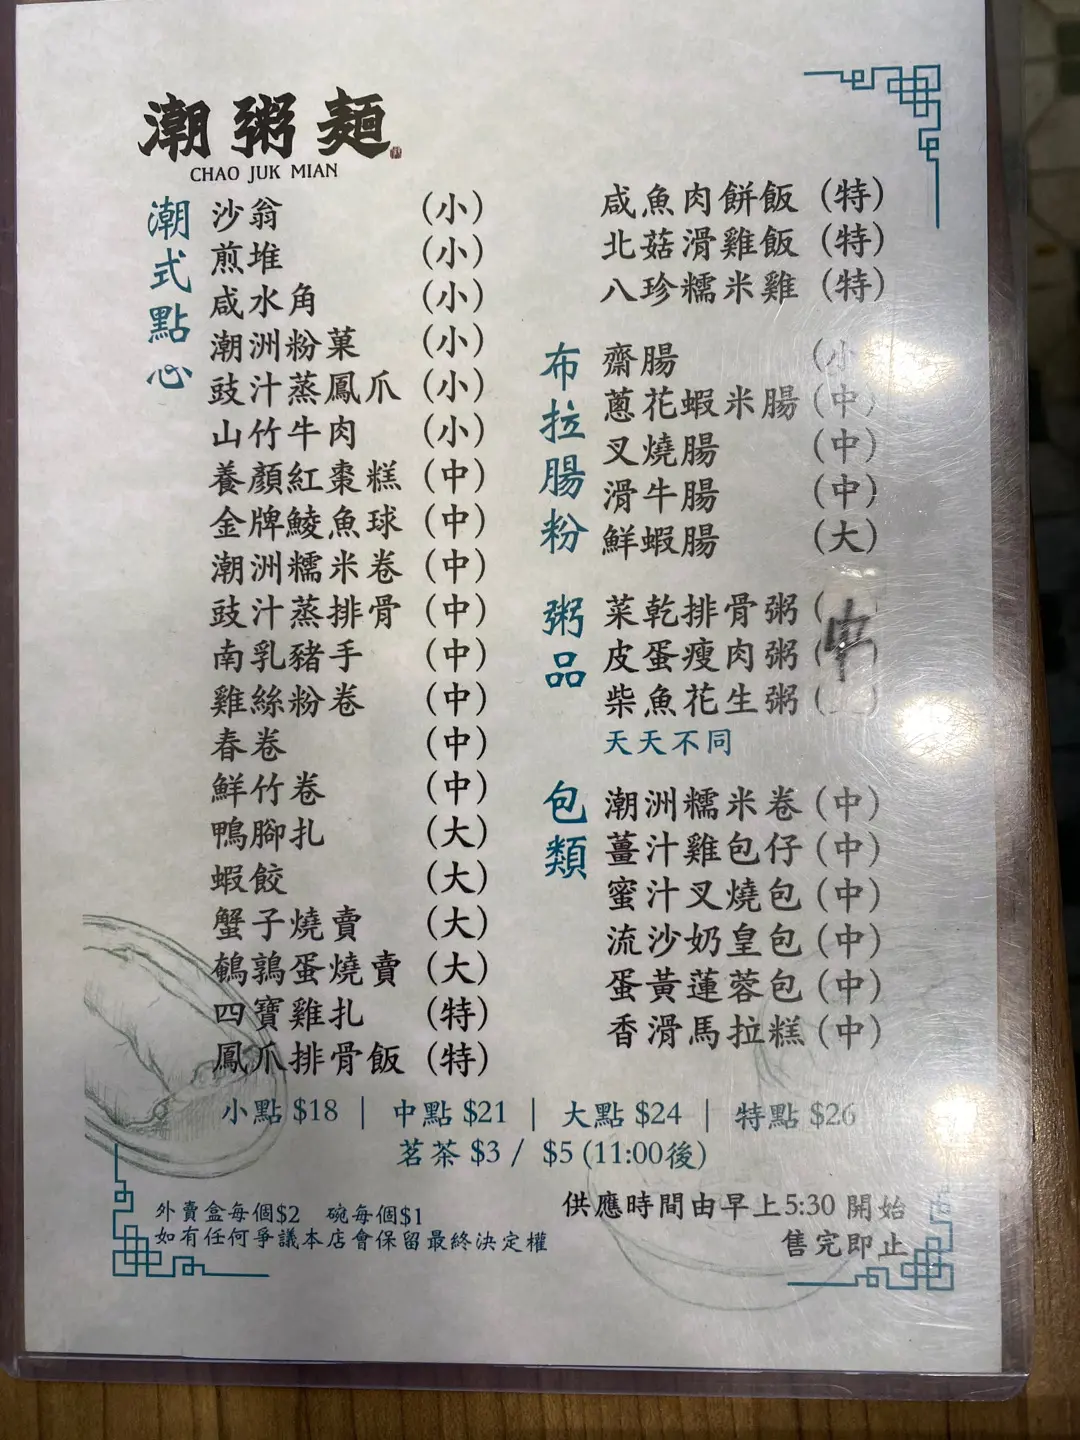 潮粥麵
CHAO JUK MIAN
潮式點心
沙翁 (小)
煎堆 (小)
咸水角 (小)
潮洲粉菓 (小)
豉汁蒸鳳爪 (小)
山竹牛肉 (小)
養顏紅棗糕 (中)
金牌鯪魚球 (中)
潮洲糯米卷 (中)
豉汁蒸排骨 (中)
南乳豬手 (中)
雞絲粉卷 (中)
春卷 (中)
鮮竹卷 (中)
鴨腳扎 (大)
蝦餃 (大)
蟹子燒賣 (大)
鵪鶉蛋燒賣 (大)
四寶雞扎 (特)
鳳爪排骨飯 (特)
咸魚肉餅飯 (特)
北菇滑雞飯 (特)
八珍糯米雞 (特)
布拉腸粉
齋腸 (小)
蔥花蝦米腸 (中)
叉燒腸 (中)
滑牛腸 (中)
鮮蝦腸 (大)
粥品
菜乾排骨粥
皮蛋瘦肉粥 中
柴魚花生粥
天天不同
包類
潮洲糯米卷 (中)
薑汁雞包仔 (中)
蜜汁叉燒包 (中)
流沙奶皇包 (中)
蛋黃蓮蓉包 (中)
香滑馬拉糕 (中)
小點 $18 | 中點 $21 | 大點 $24 | 特點 $26
茗茶 $3 / $5 (11:00後)
外賣盒每個$2 碗每個$1
如有任何爭議本店會保留最終決定權
供應時間由早上5:30 開始
售完即止